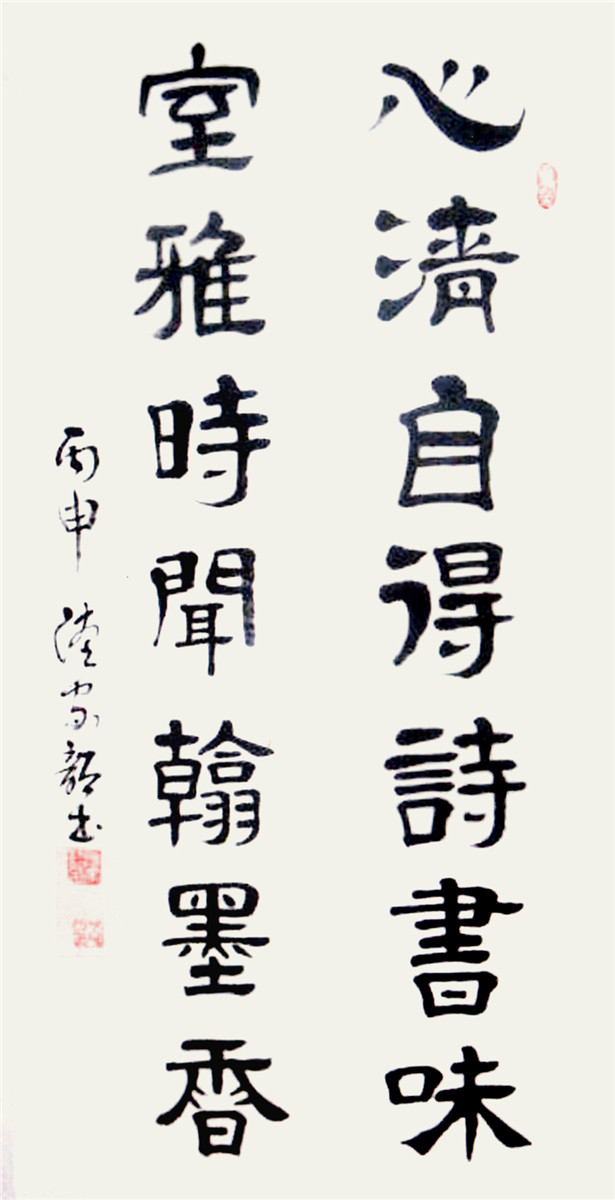 心清自得詩書味
室雅時聞翰墨香
丙申 陸家韶书